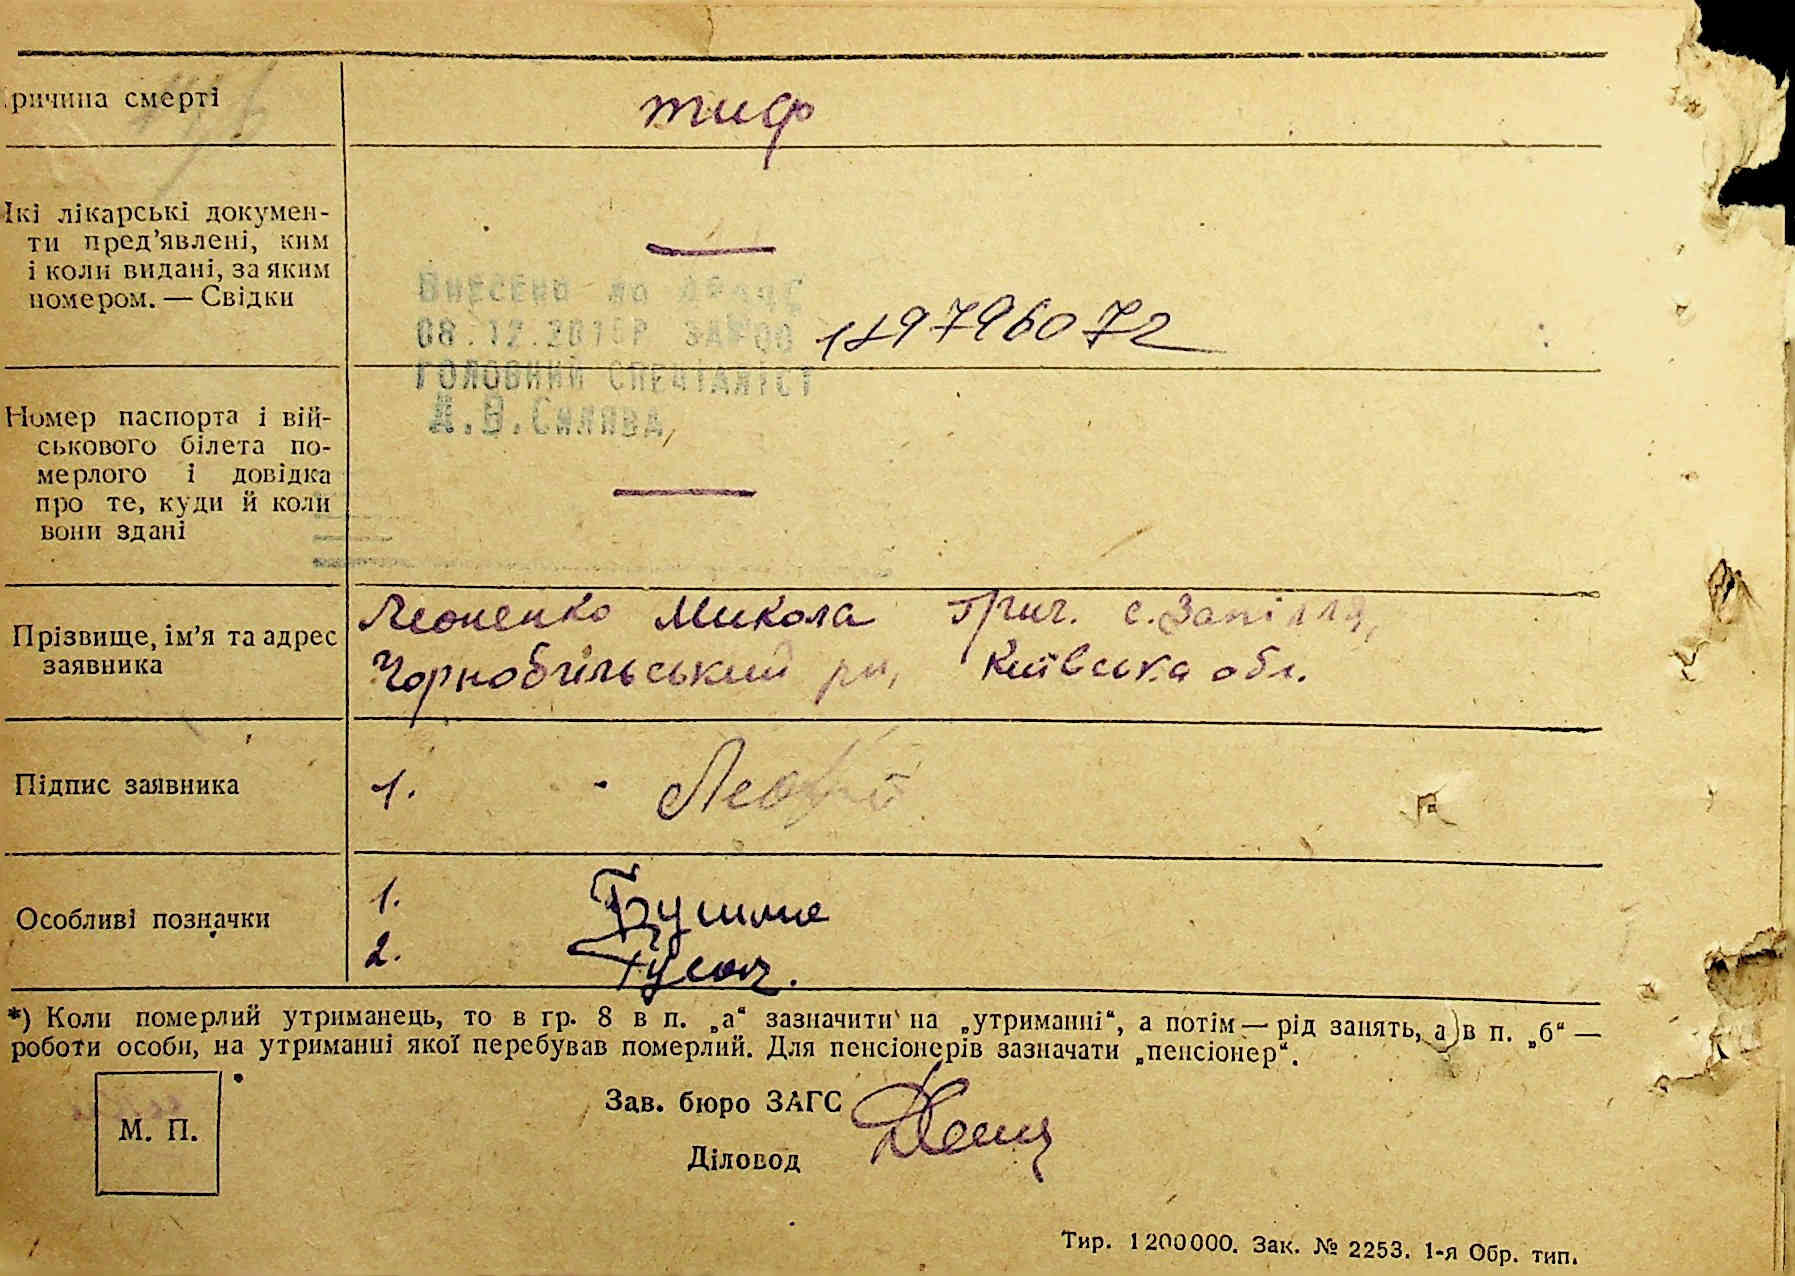 ричина смерті
тиф
Які лікарські докумен-
ти пред'явлені, ким
і коли видані, за яким
номером. — Свідки
Внесено до
08.12.201
ГОЛОВНИЙ СПЕЦІАЛІСТ
Номер паспорта і вій-
ськового білета по-
мерлого і довідка
про те, куди й коли
вони здані
Прізвище, ім'я та адрес
заявника
Леоненко Микола Григ. с. Запілля,
Чорнобильський рн, Київська обл.
Підпис заявника
1.
Особливі позначки
1.
2.
*) Коли померлий утриманець, то в гр. 8 в п. „а“ зазначити на „утриманні“, а потім — рід занять, а в п. „б“ —
роботи особи, на утриманні якої перебував померлий. Для пенсіонерів зазначати „пенсіонер“.
М. П.
Зав. бюро ЗАГС
Діловод
Тир. 1200000. Зак. № 2253. 1-я Обр. тип.